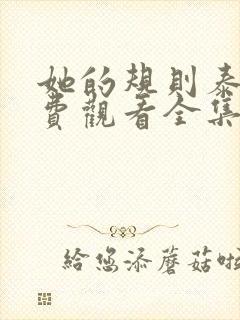 她的規則泰
費觀看全集
給您添蘑菇啦